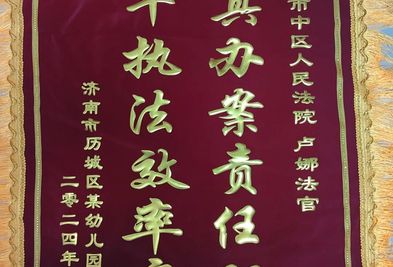 市中区人民法院 卢娜法官
真办案责任
执法效率
济南市历城区某幼儿园
二零二四年